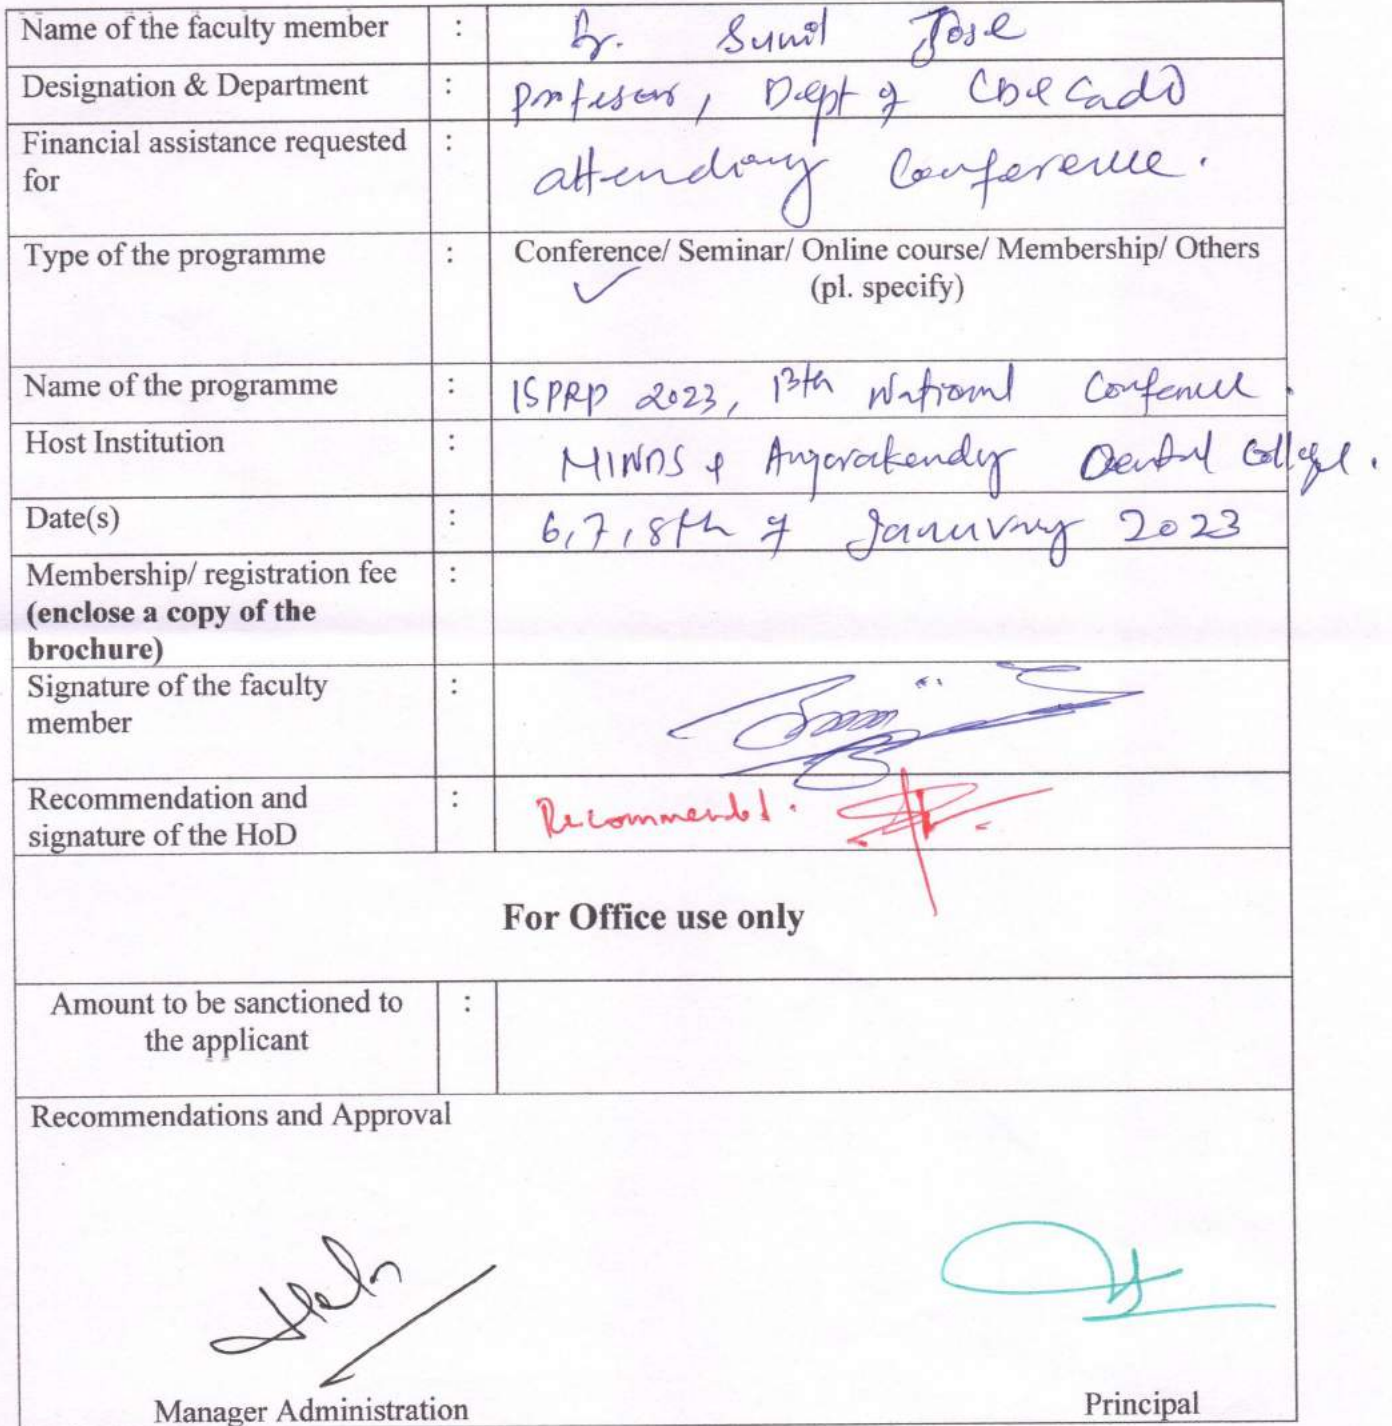 Name of the faculty member : Dr. Sunil Jose
Designation & Department : Professor, Dept of
Financial assistance requested : attending Conference.
for
Type of the programme : Conference/ Seminar/ Online course/ Membership/ Others
(pl. specify)
Name of the programme : ISPRP 2023, 13th National Conference.
Host Institution : MINDS & Anjarakandy Dental College.
Date(s) : 6,7,8th of January 2023
Membership/ registration fee :
(enclose a copy of the
brochure)
Signature of the faculty :
member
Recommendation and : Recommended.
signature of the HoD
For Office use only
Amount to be sanctioned to :
the applicant
Recommendations and Approval
Manager Administration Principal